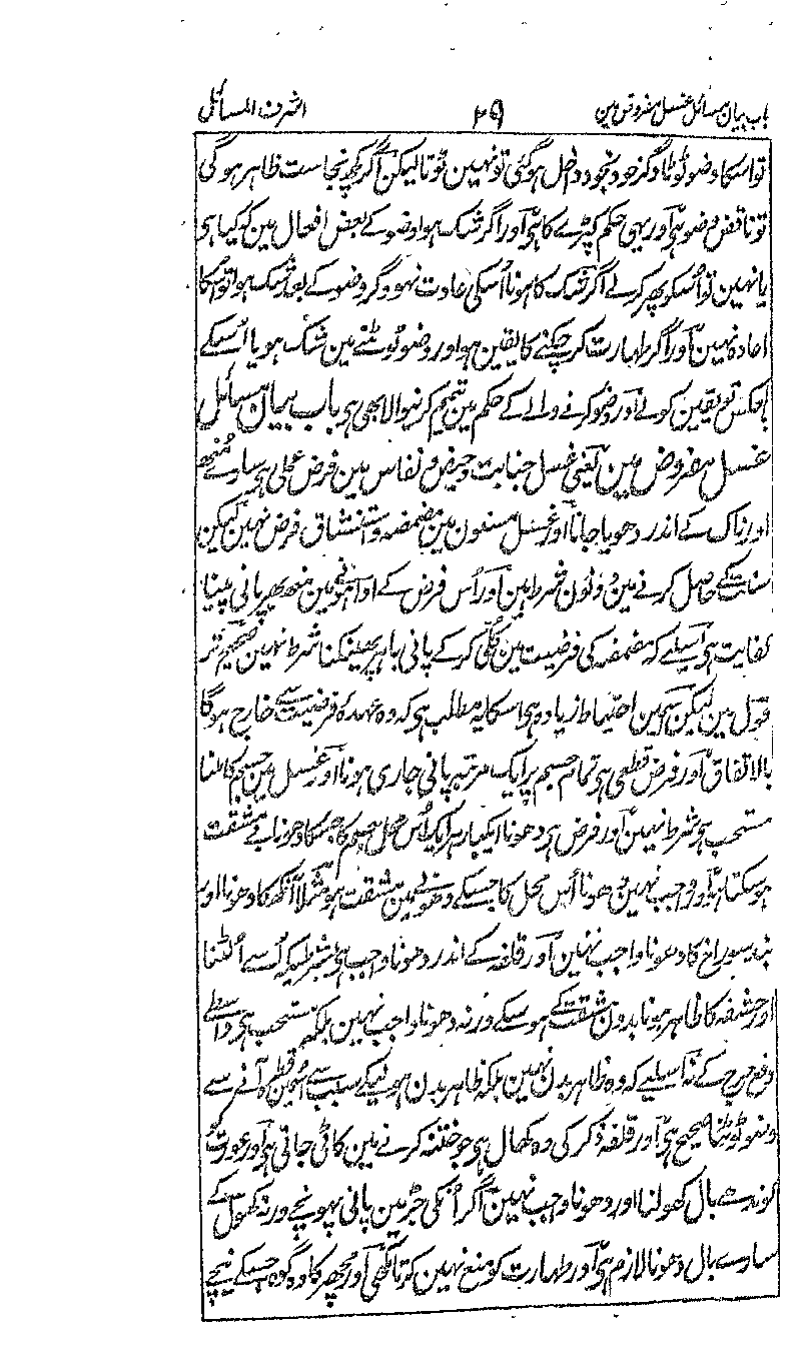 باب بیان مسائل غسل مفروض مین ۲۹ اشرف المسائل
تو اسکا وضو ٹوٹا و گر خود بخود داخل ہو گئی تو نہین ٹوٹا لیکن اگر کچھ نجاست ظاہر ہو گی
تو ناقض وضو ہی اور یہی حکم کپڑے کا ہی اور اگر شک ہوا وضو کے بعض افعال مین کہ کیا ہی
یا نہین تو اُسکو پھر کر لے اگر شک کا ہونا اُسکی عادت نہو و گر وضو کے بعد شک ہوا تو اُسکا
اعادہ نہین اور اگر طہارت کر چکنے کا یقین ہو اور وضو ٹوٹنے مین شک ہو یا اُسکے
بالعکس تو یقین کو لے اور وضو کرنے والے کے حکم مین تیمم کرنیوالا بھی ہی باب بیان مسائل
غسل مفروض مین یعنی غسل جنابت و حیض و نفاس مین فرض عملی ہی سارے مُنھ
اور ناک کے اندر دھویا جانا اور غسل مسنون مین مضمضہ و استنشاق فرض نہین لیکن
سنت کے حاصل کرنے مین دونون شرط ہین اور اُس فرض کے ادا ہونے مین منھ بھر پانی پینا
کفایت ہی اسلیے کہ مضمضہ کی فرضیت مین کلّی کرکے پانی باہر پھینکنا شرط نہین صحیح تر
قول مین لیکن اسمین احتیاط زیادہ ہی اسکا یہ مطلب ہی کہ وہ عہدۂ فرضیت سے خارج ہوگا
بالاتفاق اور فرض قطعی ہی تمام جسم پر ایک مرتبہ پانی جاری ہونا اور غسل مین جسم کا ملنا
مستحب ہی شرط نہین اور فرض ہی دھونا ایکبار ہر ایک اُس محل جسم کا جسکا دھونا بے مشقت
ہو سکتا ہی اور واجب نہین دھونا اُس محل کا جسکے دھونے مین مشقت ہو مثلا آنکھ کا دھونا اور
بند سوراخ کا دھونا واجب نہین اور قلفہ کے اندر دھونا واجب ہی بشرطیکہ اُسے اُلٹنا
اور حشفہ کا ظاہر ہونا بدون مشقت کے ہو سکے ورنہ دھونا واجب نہین بلکہ مستحب ہی واسطے
دفع حرج کے نہ اسلیے کہ وہ ظاہر بدن نہین بلکہ ظاہر بدن ہونیکے سبب سے اُسمین قطرہ آنے سے
وضو ٹوٹنا صحیح ہی اور قلفہ ذکر کی وہ کھال ہی جو ختنہ کرنے مین کاٹی جاتی ہی اور عورت کو
گوندھے بال کھولنا اور دھونا واجب نہین اگر اُنکی جڑ مین پانی پہونچے ورنہ کھول کے
سارے بال دھونا لازم ہی اور طہارت کو منع نہین کرتا مکھی اور مچھر کا وہ گوہ جسکے نیچے